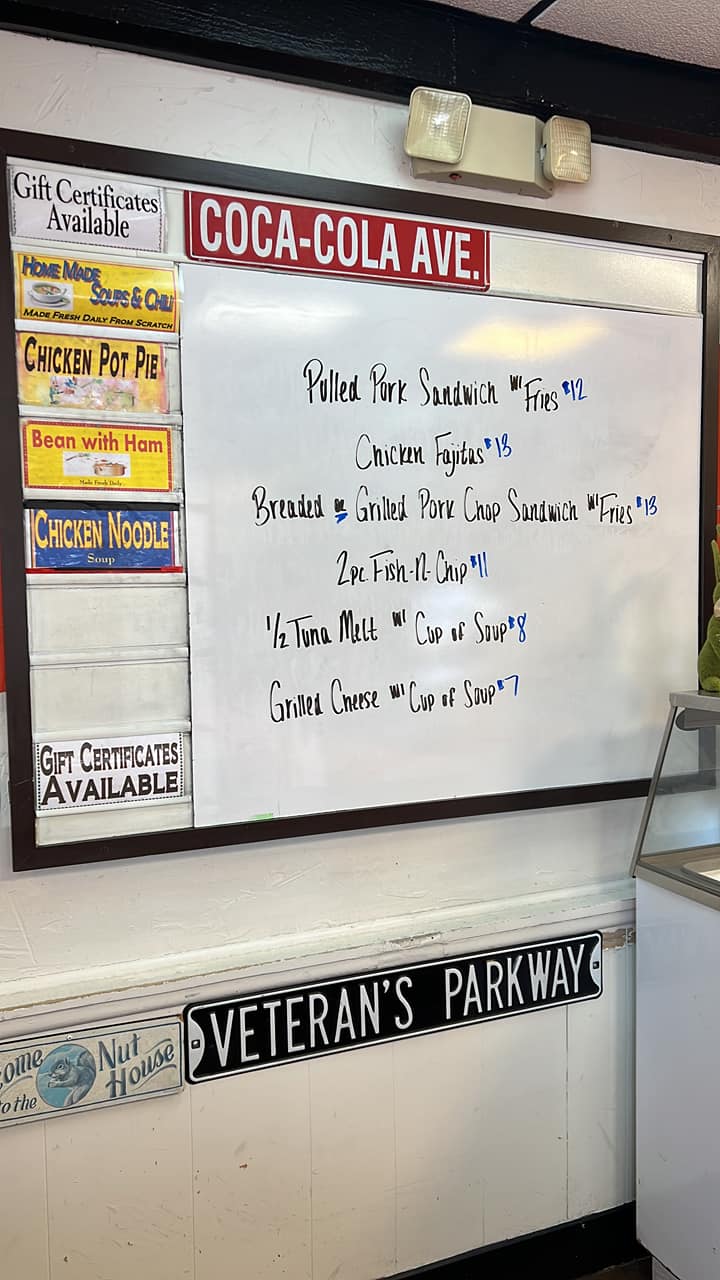 Gift Certificates
Available
COCA-COLA AVE.
HOME MADE
SOUPS & CHILI
MADE FRESH DAILY FROM SCRATCH
CHICKEN POT PIE
Bean with Ham
Made Fresh Daily
CHICKEN NOODLE
Soup
GIFT CERTIFICATES
AVAILABLE
Pulled Pork Sandwich w/ Fries $12
Chicken Fajitas $13
Breaded or Grilled Pork Chop Sandwich w/ Fries $13
2pc Fish-N-Chip $11
1/2 Tuna Melt w/ Cup of Soup $8
Grilled Cheese w/ Cup of Soup $7
VETERAN'S PARKWAY
come
to the
Nut
House